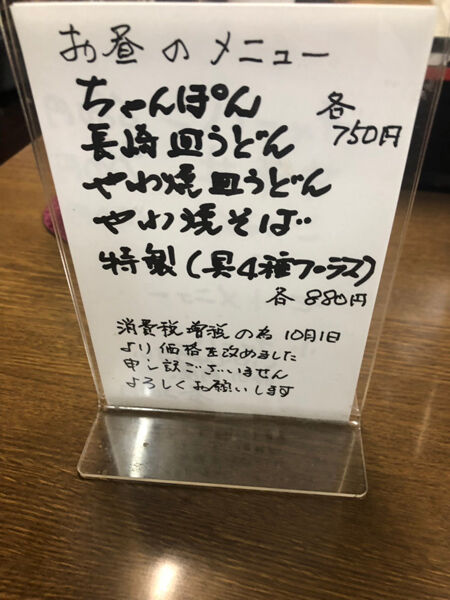 お昼のメニュー
ちゃんぽん
各
750円
長崎皿うどん
やわ焼皿うどん
やわ焼そば
特製(具4種プラス)
各880円
消費税増税の為10月1日
より価格を改めました
申し訳ございません
よろしくお願いします